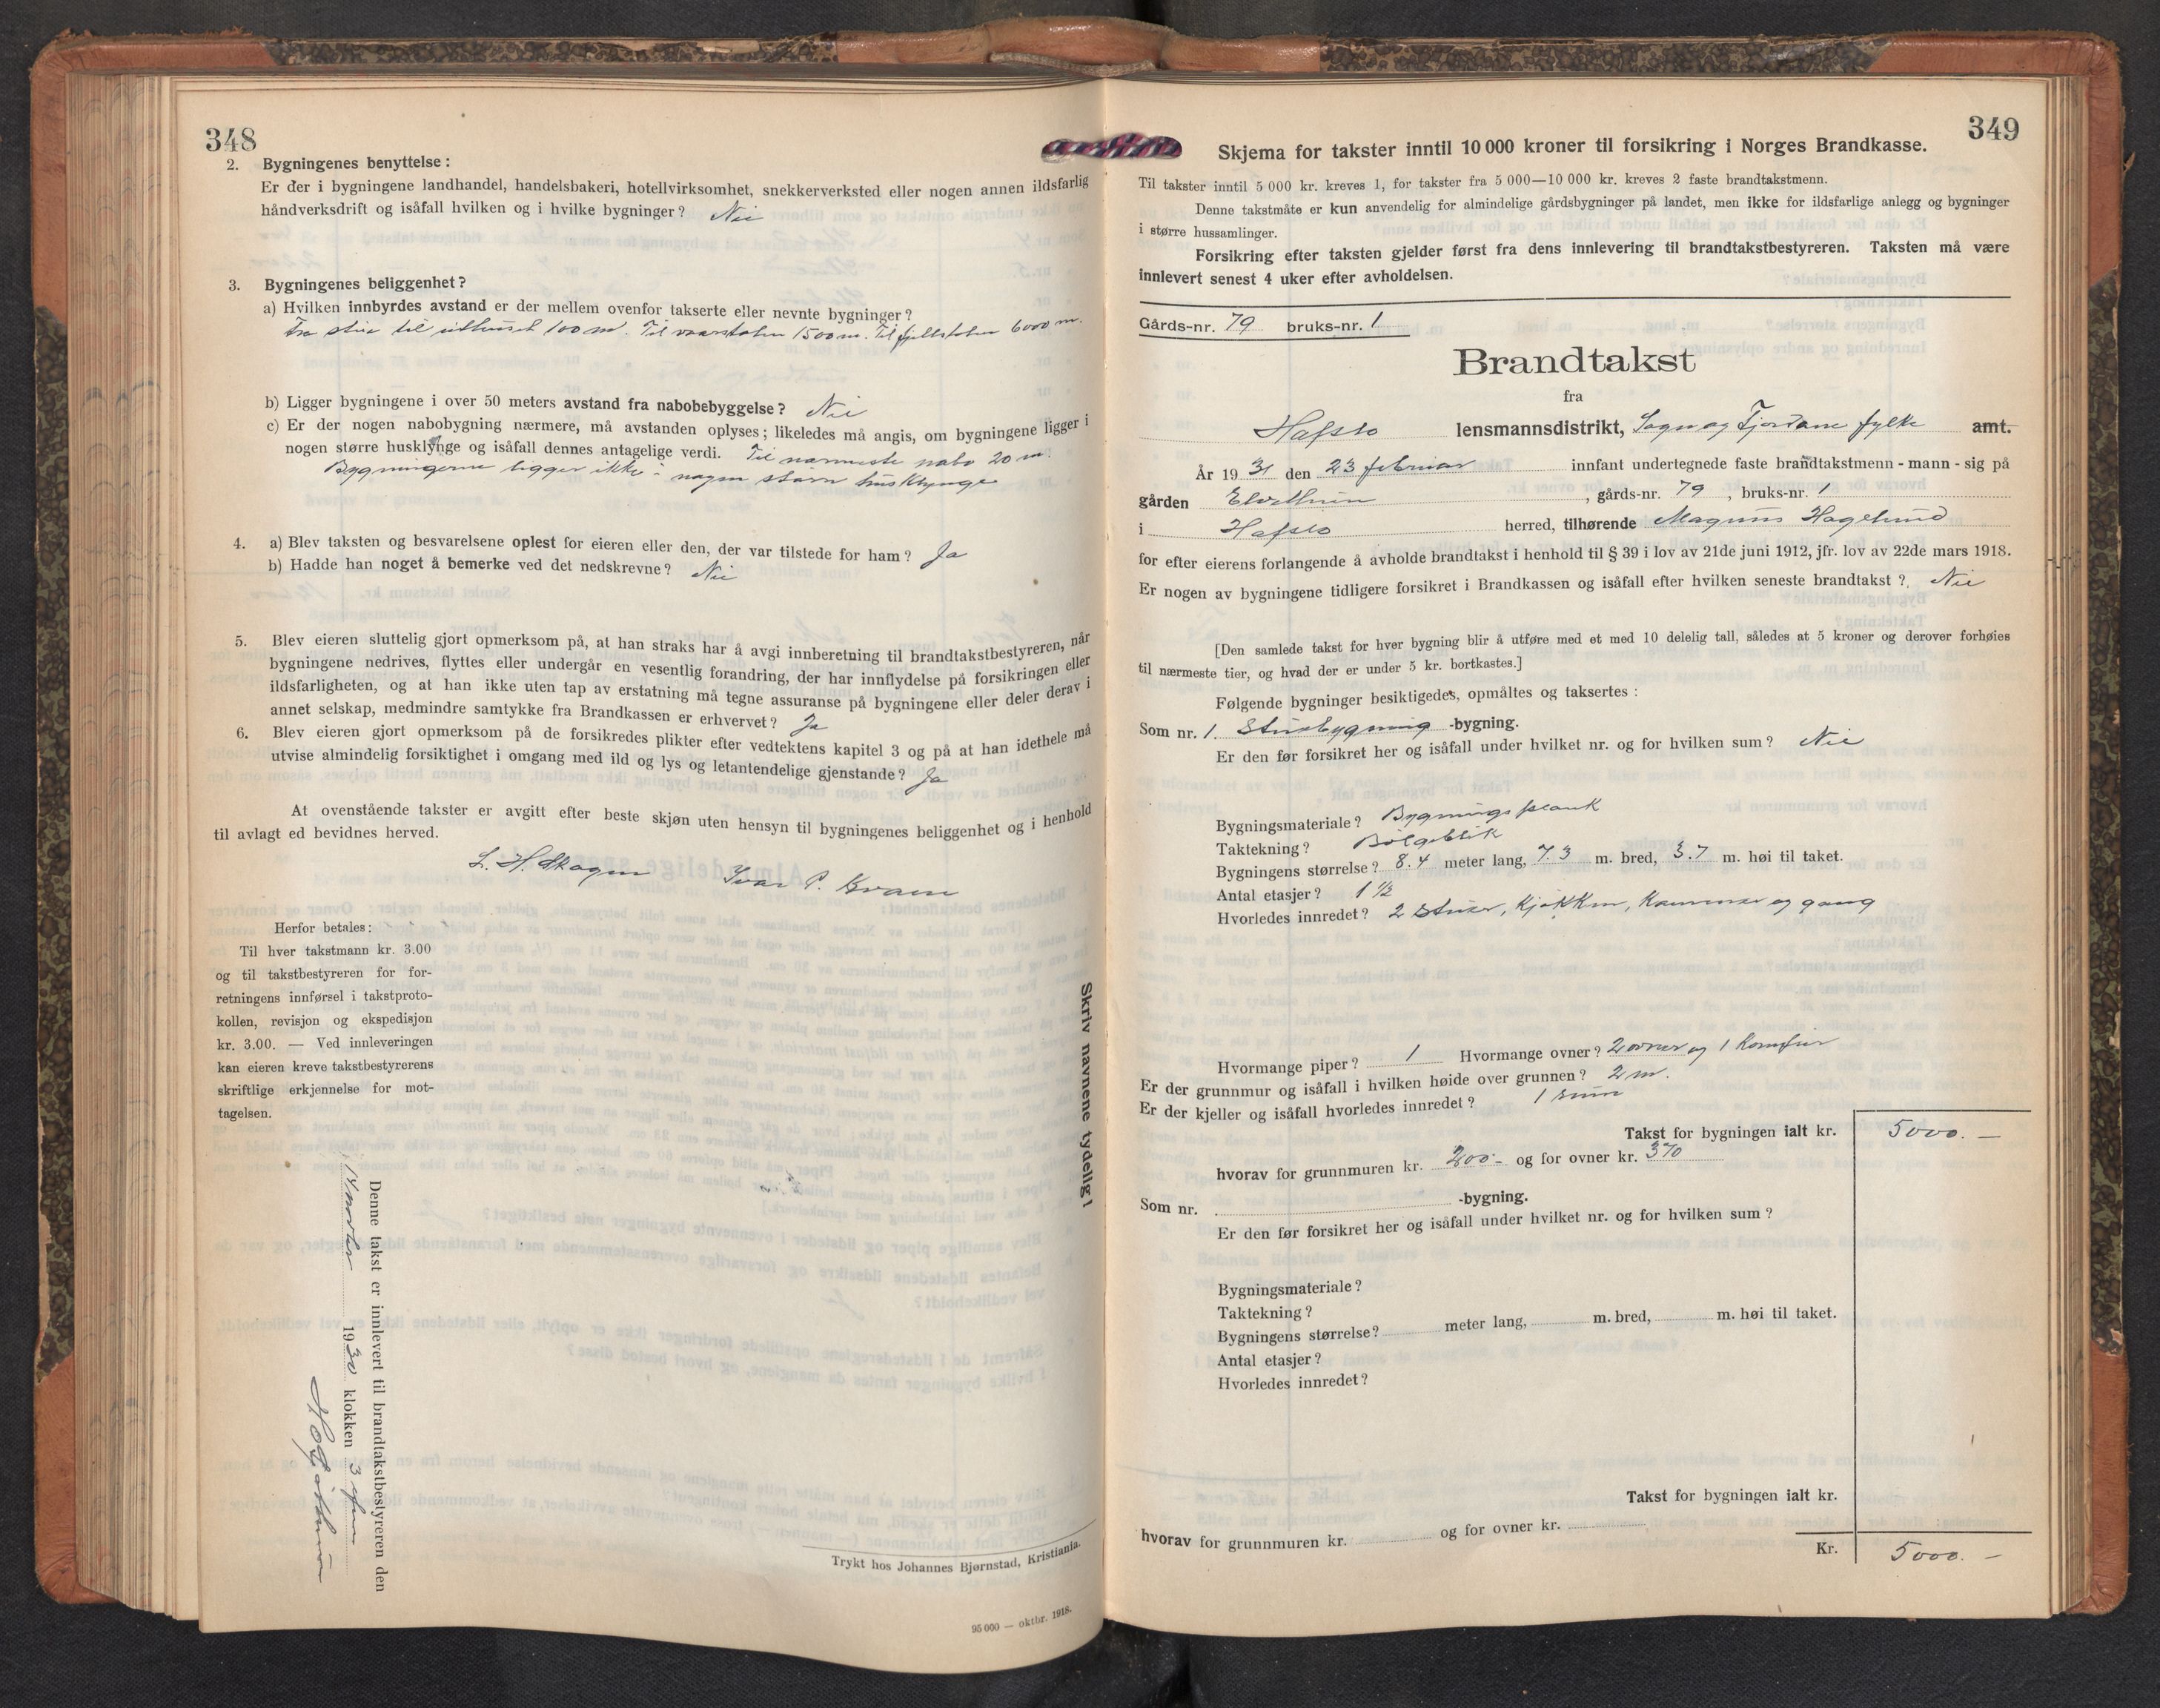 348
2. Bygningenes benyttelse:
Er der i bygningene landhandel, handelsbakeri, hotellvirksomhet, snekkerverksted eller nogen annen ildsfarlig
håndverksdrift og isåfall hvilken og i hvilke bygninger? Nei
3. Bygningenes beliggenhet?
a) Hvilken innbyrdes avstand er der mellem ovenfor takserte eller nevnte bygninger?
Fra stue til uthuset 100 m. Til vaarstølen 1500 m. Til fjellstølen 6000 m.
b) Ligger bygningene i over 50 meters avstand fra nabobebyggelse? Nei
c) Er der nogen nabobygning nærmere, må avstanden oplyses; likeledes må angis, om bygningene ligger i
nogen større husklynge og isåfall dennes antagelige verdi. Til nærmeste nabo 20 m.
Bygningerne ligger ikke i nogen større husklynge
4. a) Blev taksten og besvarelsene oplest for eieren eller den, der var tilstede for ham? Ja
b) Hadde han noget å bemerke ved det nedskrevne? Nei
5. Blev eieren sluttelig gjort opmerksom på, at han straks har å avgi innberetning til brandtakstbestyreren, når
bygningene nedrives, flyttes eller undergår en vesentlig forandring, der har innflydelse på forsikringen eller
ildsfarligheten, og at han ikke uten tap av erstatning må tegne assuranse på bygningene eller deler derav i
annet selskap, medmindre samtykke fra Brandkassen er erhvervet? Ja
6. Blev eieren gjort opmerksom på de forsikredes plikter efter vedtektens kapitel 3 og på at han idethele må
utvise almindelig forsiktighet i omgang med ild og lys og letantendelige gjenstande? Ja
At ovenstående takster er avgitt efter beste skjøn uten hensyn til bygningenes beliggenhet og i henhold
til avlagt ed bevidnes herved.
L. H. Skagen Ivar P. Kvam
Herfor betales:
Til hver takstmann kr. 3.00
og til takstbestyreren for for-
retningens innførsel i takstproto-
kollen, revisjon og ekspedisjon
kr. 3.00. — Ved innleveringen
kan eieren kreve takstbestyrerens
skriftlige erkjennelse for mot-
tagelsen.
Skriv navnene tydelig!
Denne takst er innlevert til brandtakstbestyreren den
14 marts 1930 klokken 3
Trykt hos Johannes Bjørnstad, Kristiania.
95 000 — oktbr. 1918.
349
Skjema for takster inntil 10 000 kroner til forsikring i Norges Brandkasse.
Til takster inntil 5 000 kr. kreves 1, for takster fra 5 000—10 000 kr. kreves 2 faste brandtakstmenn.
Denne takstmåte er kun anvendelig for almindelige gårdsbygninger på landet, men ikke for ildsfarlige anlegg og bygninger
i større hussamlinger.
Forsikring efter taksten gjelder først fra dens innlevering til brandtakstbestyreren. Taksten må være
innlevert senest 4 uker efter avholdelsen.
Gårds-nr. 79 bruks-nr. 1
Brandtakst
fra
Hafslo lensmannsdistrikt, Sogn og Fjordane fylke amt.
År 1931 den 23 februar innfant undertegnede faste brandtakstmenn - mann - sig på
gården Elvethun, gårds-nr. 79, bruks-nr. 1
i Hafslo herred, tilhørende Magnus Hagelund
for efter eierens forlangende å avholde brandtakst i henhold til § 39 i lov av 21de juni 1912, jfr. lov av 22de mars 1918.
Er nogen av bygningene tidligere forsikret i Brandkassen og isåfall efter hvilken seneste brandtakst? Nei
[Den samlede takst for hver bygning blir å utføre med et med 10 delelig tall, således at 5 kroner og derover forhøies
til nærmeste tier, og hvad der er under 5 kr. bortkastes.]
Følgende bygninger besiktigedes, opmåltes og taksertes:
Som nr. 1. Stuebygning -bygning.
Er den før forsikret her og isåfall under hvilket nr. og for hvilken sum? Nei
Bygningsmateriale? Bygningsplank
Taktekning? Bølgeblik
Bygningens størrelse? 8.4 meter lang, 7.3 m. bred, 3.7 m. høi til taket.
Antal etasjer? 1 ½
Hvorledes innredet? 2 Stuer, Kjøkken, Kammer og gang
Hvormange piper? 1 Hvormange ovner? 2 ovner og 1 Komfur
Er der grunnmur og isåfall i hvilken høide over grunnen? 2 m.
Er der kjeller og isåfall hvorledes innredet? 1 rum
Takst for bygningen ialt kr. 5000. —
hvorav for grunnmuren kr. 200.- og for ovner kr. 370
Som nr. -bygning.
Er den før forsikret her og isåfall under hvilket nr. og for hvilken sum?
Bygningsmateriale?
Taktekning?
Bygningens størrelse? meter lang, m. bred, m. høi til taket.
Antal etasjer?
Hvorledes innredet?
Takst for bygningen ialt kr.
hvorav for grunnmuren kr. og for ovner kr.
Kr. 5000. —